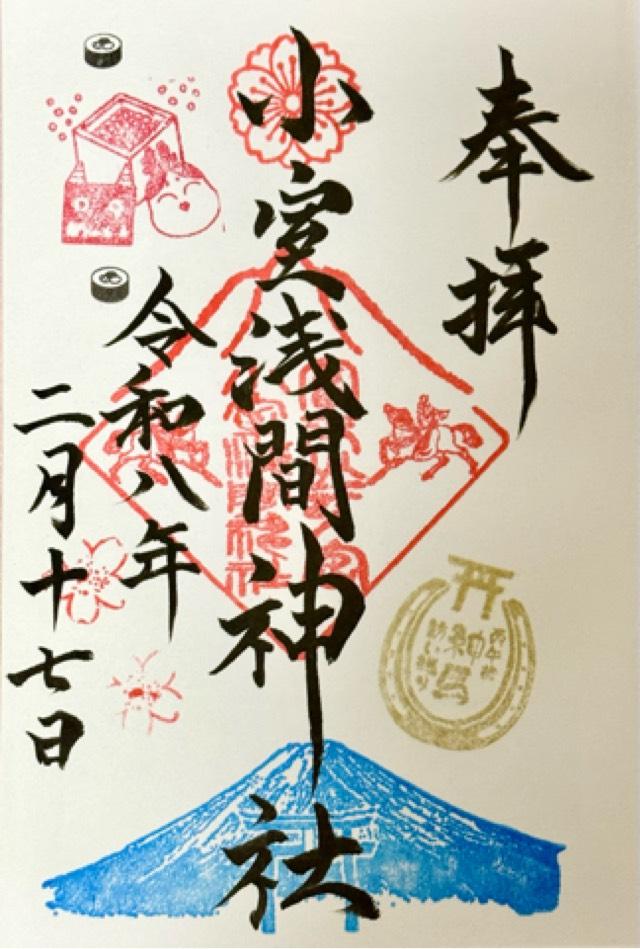 奉拝
小室浅間神社
令和八年
二月十七日